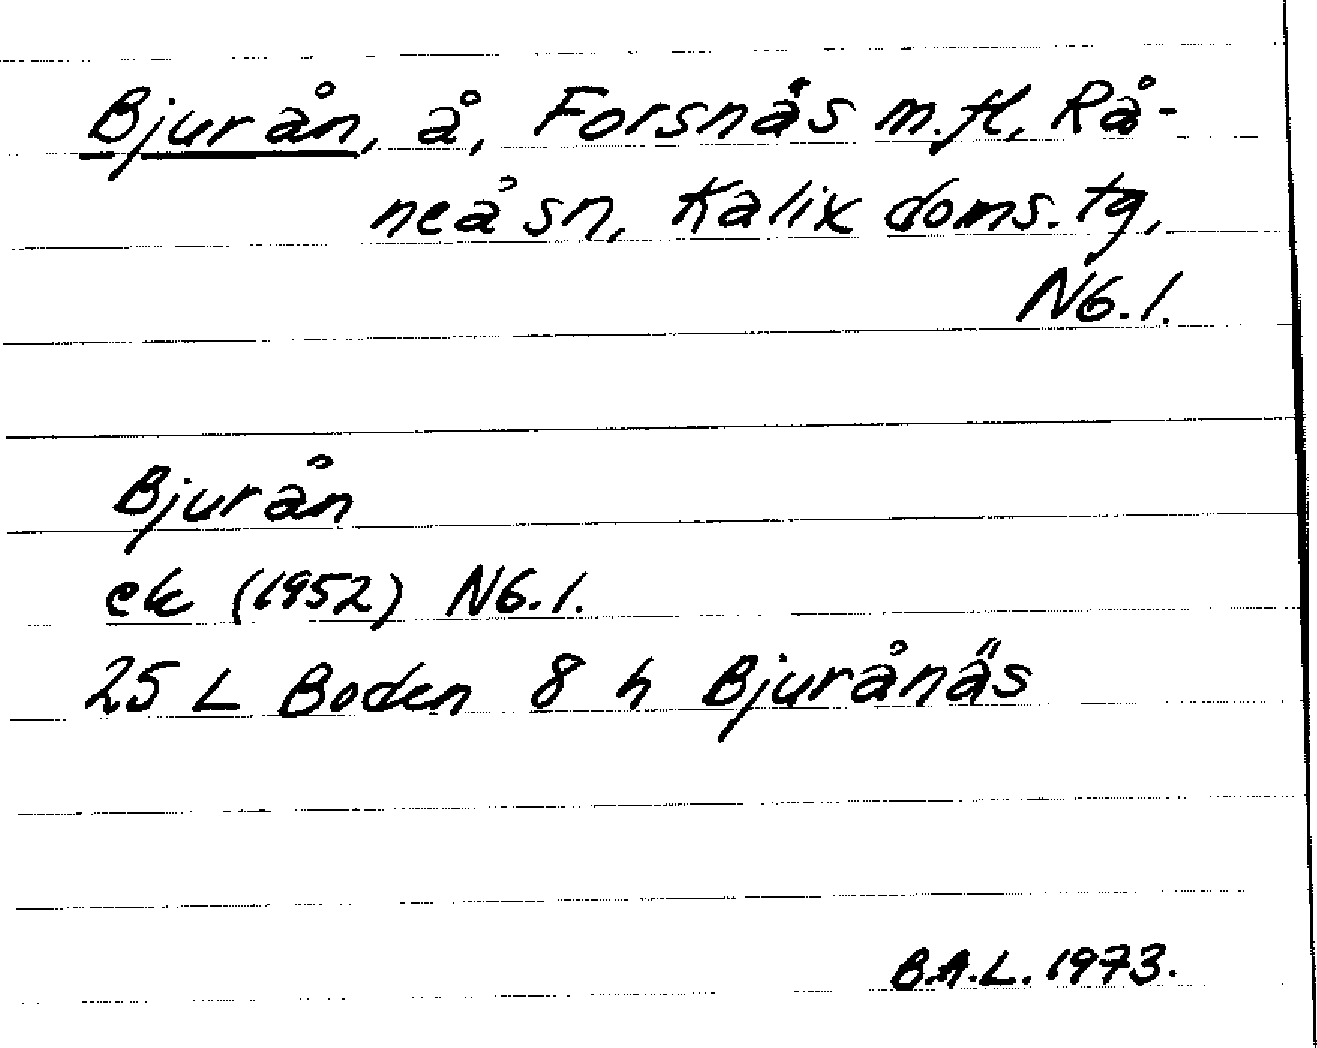 Bjurån, å, Forsnäs m.fl, Rå-
neå sn, Kalix doms.tg,
Nb.l.
Bjurån
ek (1952) Nb.l.
25 L Boden 8 h Bjurånäs
B.A.L. 1973.